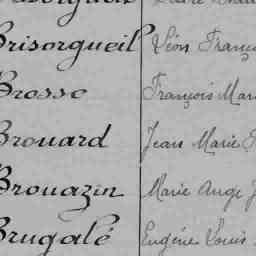 Brisorgueil Léon Franço
Brosse François Mari
Brouard Jean Marie
Brouazin Marie Ange J
Brugalé Eugène Louis